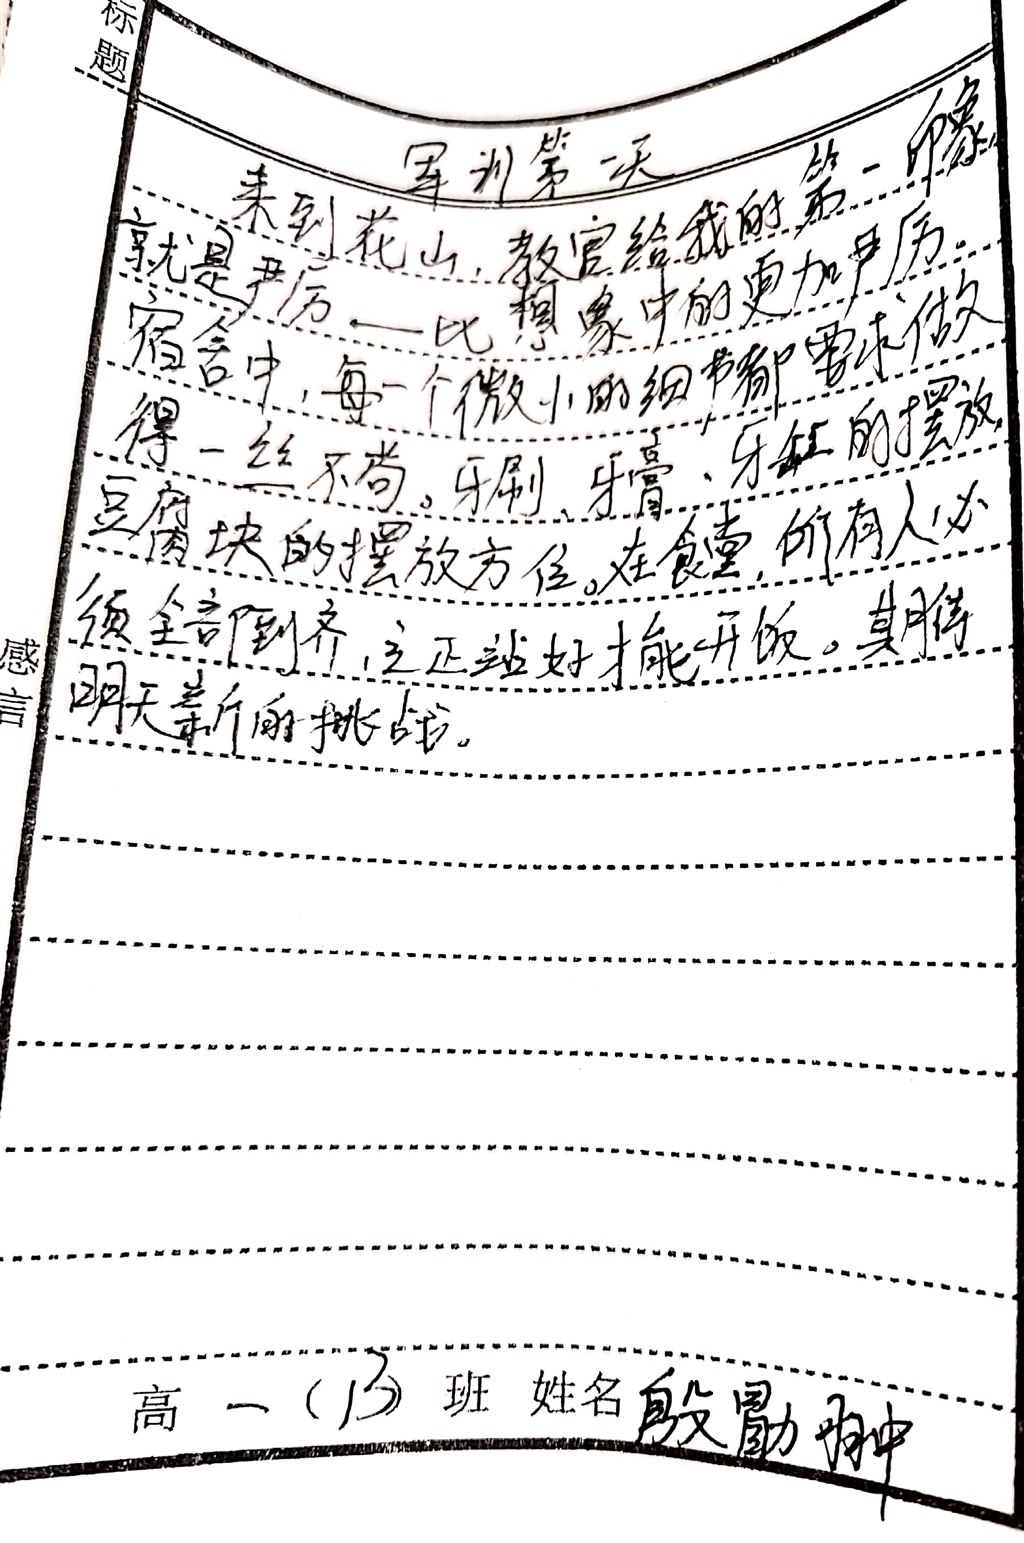 标题
军训第一天
来到花山,教官给我的第一印象
就是严厉——比想象中的更加严厉。
宿舍中,每一个微小的细节都要求做
得一丝不苟。牙刷、牙膏、牙缸的摆放,
豆腐块的摆放方位。在食堂,所有人必
须全部到齐,立正站好才能开饭。期待
明天新的挑战。
感言
高一(13)班 姓名 殷勖